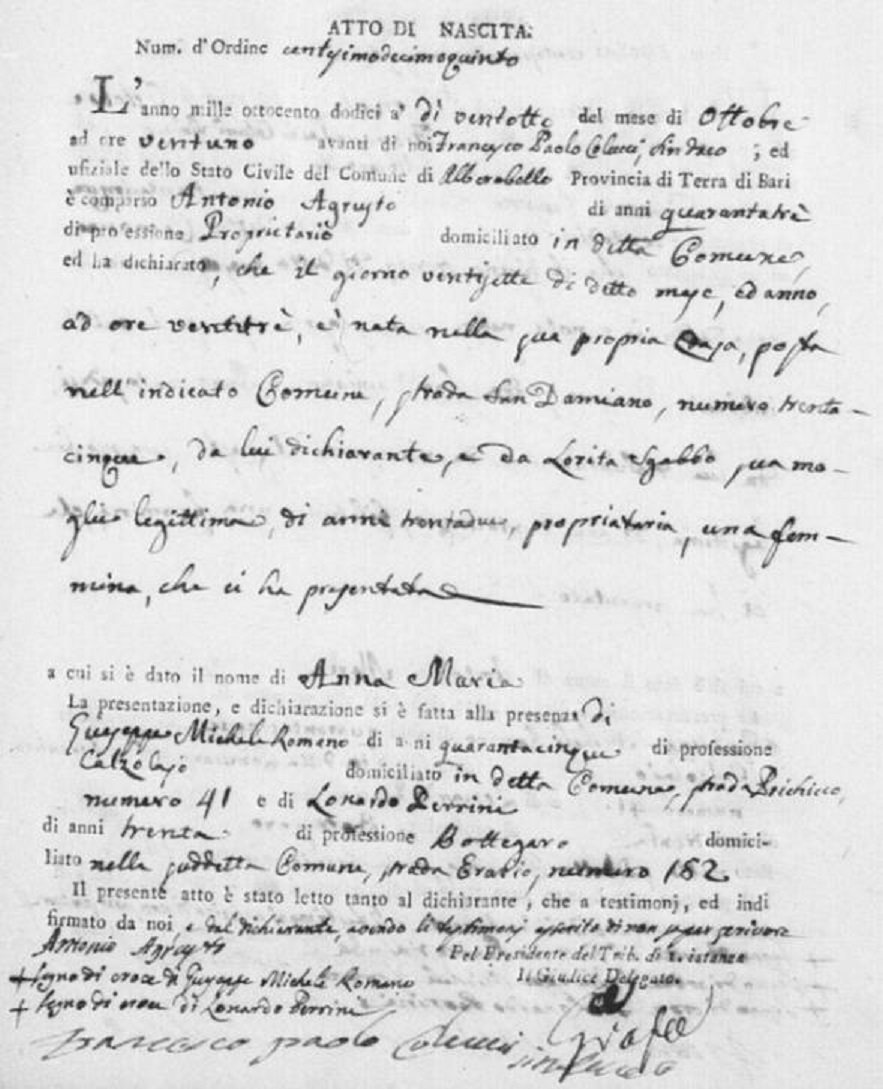 ATTO DI NASCITA.
Num. d'Ordine centesimodecimoquinto
L'anno mille ottocento dodici a' dì ventotto del mese di Ottobre
ad ore ventuno avanti di noi Francesco Paolo Colucci, Sindaco ; ed
ufiziale dello Stato Civile del Comune di Alberobello Provincia di Terra di Bari
è comparso Antonio Agrusto di anni quarantatrè
di professione Proprietario domiciliato in detta Comune,
ed ha dichiarato, che il giorno ventisette di detto mese, ed anno,
ad ore ventitrè, è nata nella sua propria Casa, posta
nell'indicato Comune, strada San Damiano, numero trenta-
cinque, da lui dichiarante, e da Lorita Sgobbo sua mo-
glie legittima, di anni trentadue, propriataria, una fem-
mina, che ci ha presentata
a cui si è dato il nome di Anna Maria
La presentazione, e dichiarazione si è fatta alla presenza di
Giuseppe Michele Romano di anni quarantacinque di professione
Calzolajo domiciliato in detta Comune, strada
numero 41 e di Lonardo Perrini
di anni trenta di professione Bottegaro domici-
liato nella suddetta Comune, strada Erario, numero 162.
Il presente atto è stato letto tanto al dichiarante, che a testimonj, ed indi
firmato da noi, e dal dichiarante, avendo li testimonj asserito di non saper scrivere
Antonio Agrusto Pel Presidente del Trib. di 1. istanza
+ Segno di croce di Giuseppe Michele Romano Il Giudice Delegato.
+ Segno di croce di Lonardo Perrini
Francesco paolo Colucci sindaco